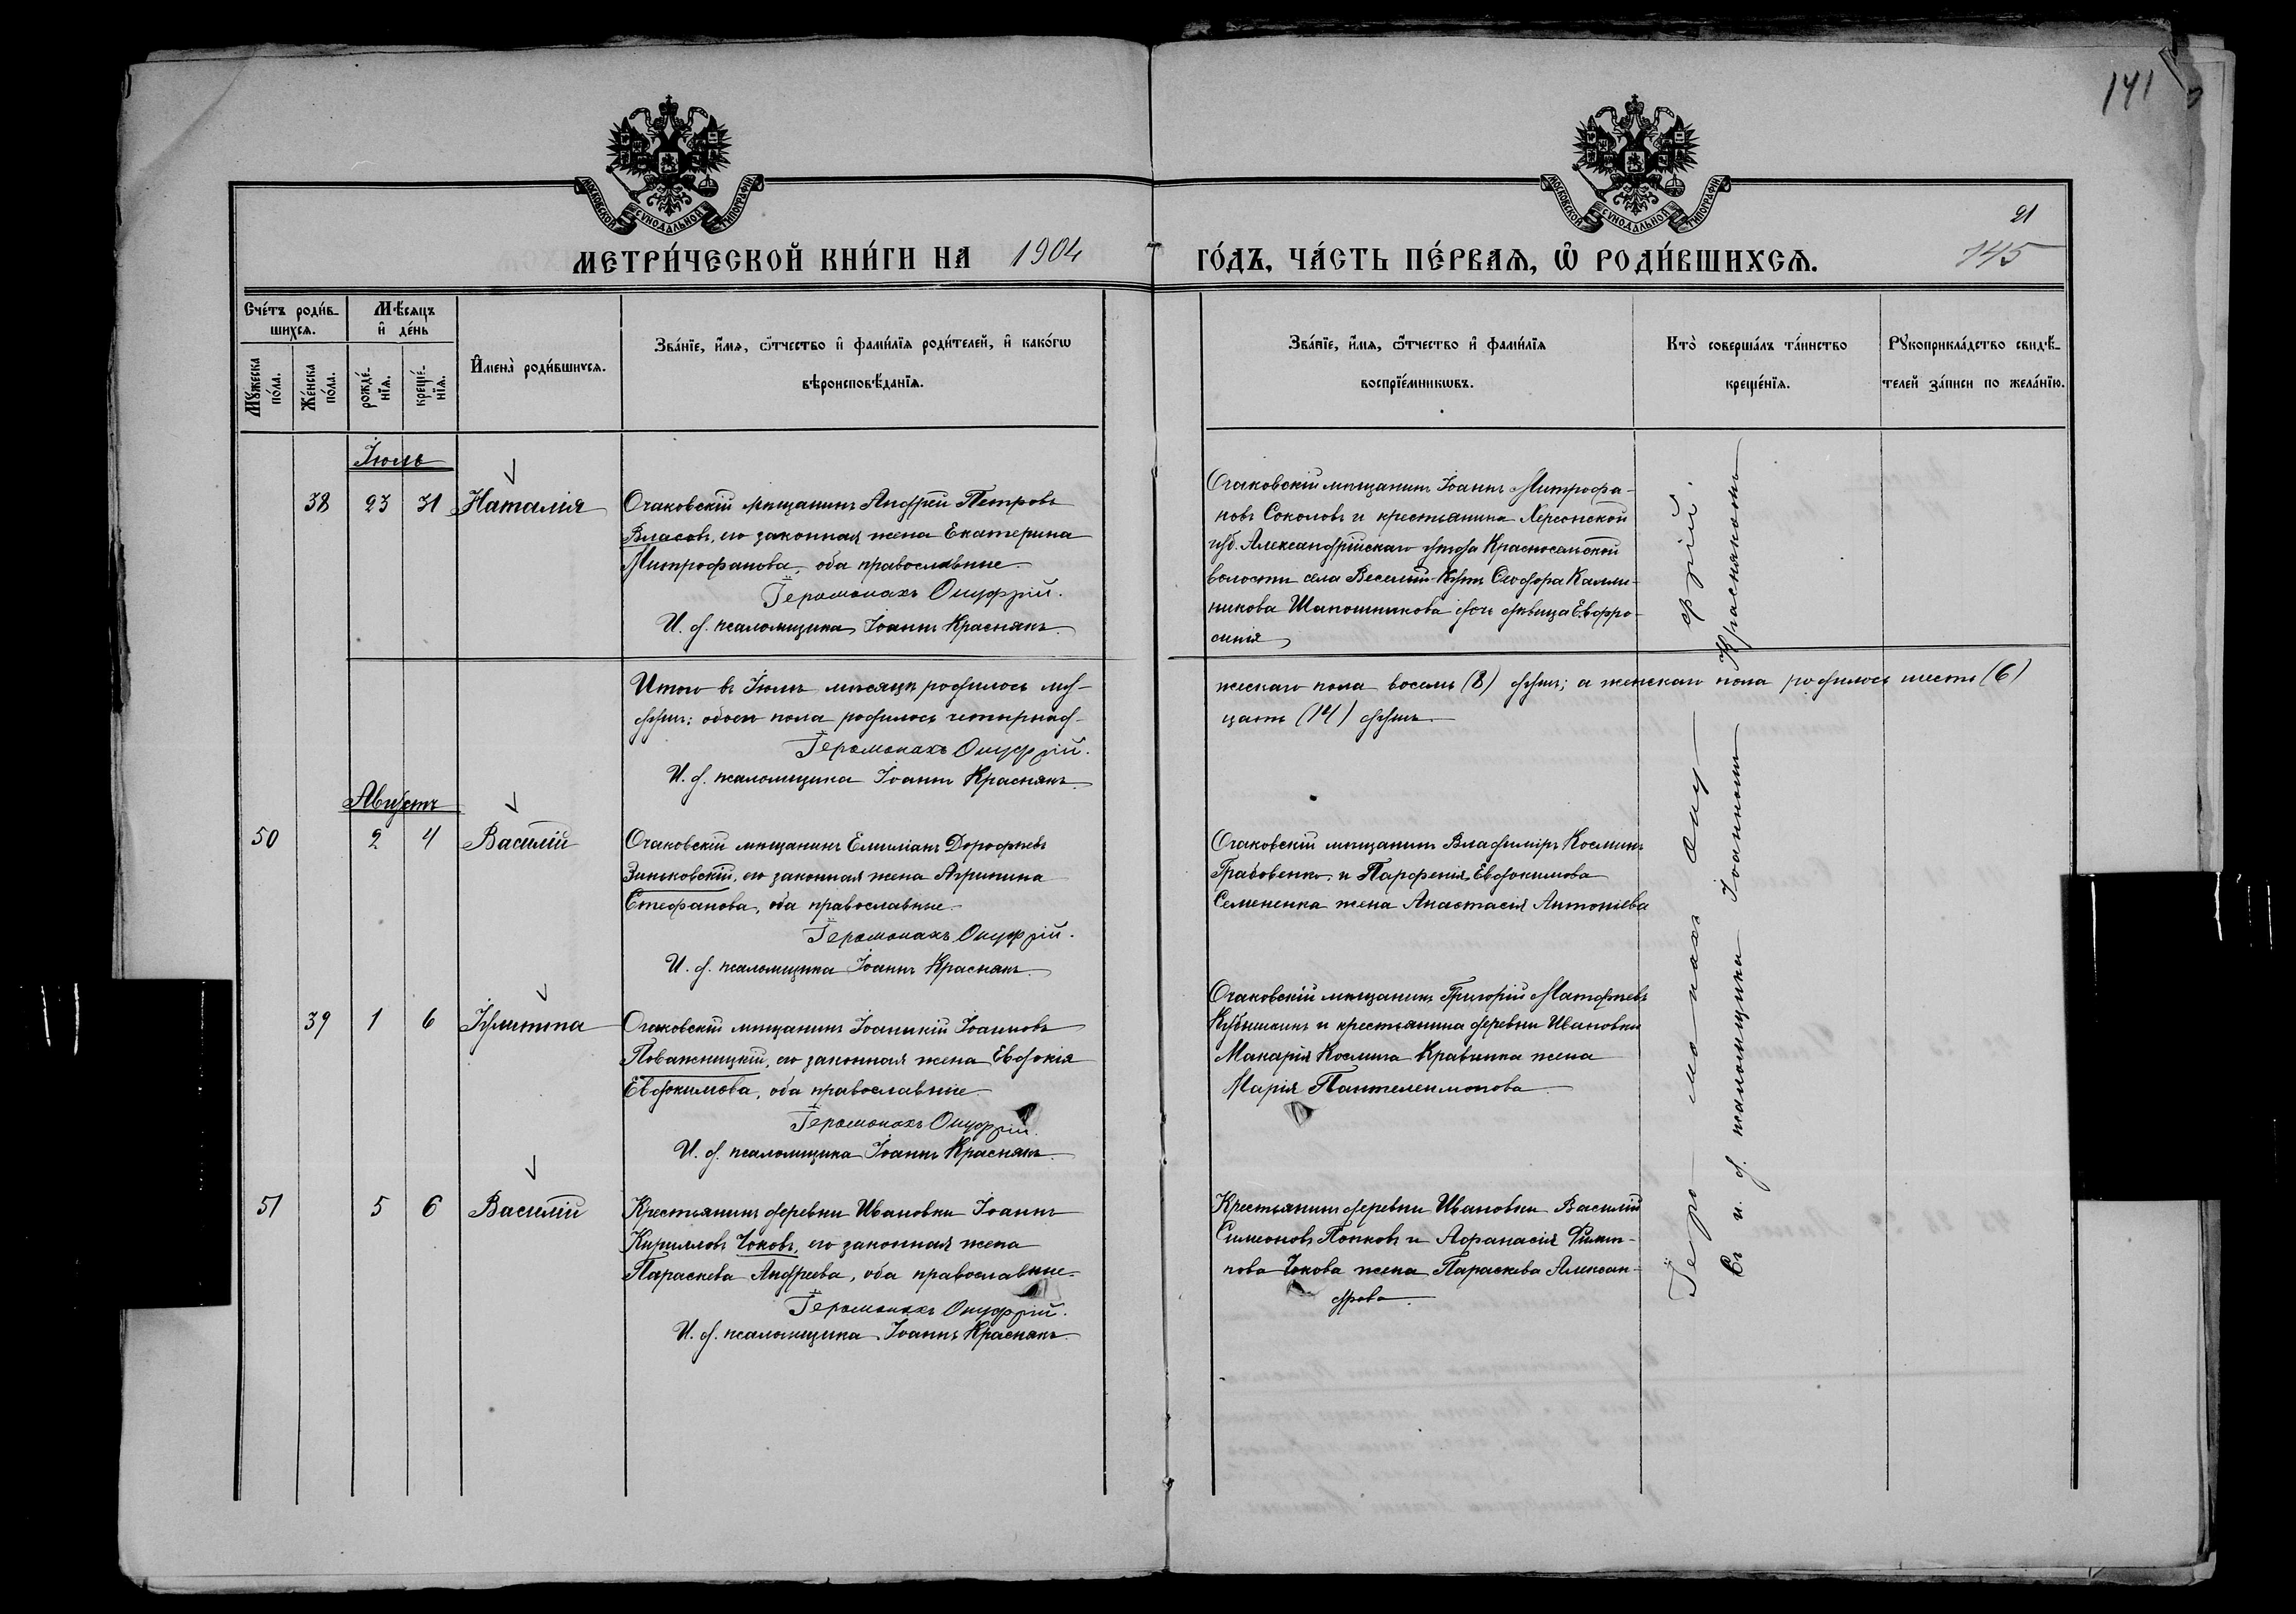 141
МОСКОВСКОЙ СУНОДАЛЬНОЙ ТИПОГРАФІИ
МОСКОВСКОЙ СУНОДАЛЬНОЙ ТИПОГРАФІИ
21
МЕТРИ́ЧЕСКОЙ КНИ́ГИ НА 1904
ГО́ДЪ, ЧА́СТЬ ПЕ́РВАѦ, Ѡ҆ РОДИ́ВШИХСѦ.
145
Сче́тъ роди́в-
шихсѧ.
Мѣ́сѧцъ
и҆ де́нь
И҆мена̀ роди́вшихсѧ.
Зва́нїе, и҆́мѧ, ѻ҆́тчество и҆ фами́лїѧ роди́телей, и҆ како́гѡ
вѣроисповѣ́данїѧ.
Мꙋ́жеска по́ла.
Же́нска по́ла.
рожде́-нїѧ.
креще́-нїѧ.
Зва́нїе, и҆́мѧ, ѻ҆́тчество и҆ фами́лїѧ
воспрїе́мникѡвъ.
Кто̀ соверша́лъ та́инство
креще́нїѧ.
Рꙋкоприкла́дство свидѣ́-
телей за́писи по жела́нїю.
Іюль
38 23 31 Наталія
Очаковскій мѣщанинъ Андрей Петровъ
Власовъ, его законная жена Екатерина
Митрофанова, оба православные
Іеромонахъ Онуфрій.
И. д. псаломщика Іоаннъ Краснякъ.
Очаковскій мѣщанинъ Іоаннъ Митрофа-
новъ Соколовъ и крестьянина Херсонской
губ. Александрійскаго уѣзда Красносельской
волости села Веселый-Кутъ Ѳеодора Калли-
никова Шапошникова дочь дѣвица Евфро-
синія
Итого въ Іюлѣ мѣсяцѣ родилось му-
жескаго пола восемь (8) душъ; а женскаго пола родилось шесть (6)
душъ; обоего пола родилось четырнад-
цать (14) душъ
Іеромонахъ Онуфрій.
И. д. псаломщика Іоаннъ Краснякъ.
Августъ
50 2 4 Василій
Очаковскій мѣщанинъ Емиліанъ Дороѳеевъ
Зиньковскій, его законная жена Агрипина
Стефанова, оба православные
Іеромонахъ Онуфрій.
И. д. псаломщика Іоаннъ Краснякъ.
Очаковскій мѣщанинъ Владиміръ Косминъ
Грабовенко и Парфенія Евдокимова
Семененка жена Анастасія Антоніева
39 1 6 Іулиттта
Очаковскій мѣщанинъ Іоанникій Іоанновъ
Поважницкій, его законная жена Евдокія
Евдокимова, оба православные
Іеромонахъ Онуфрій.
И. д. псаломщика Іоаннъ Краснякъ.
Очаковскій мѣщанинъ Григорій Матѳеевъ
Кубышкинъ и крестьянина деревни Ивановки
Макарія Космина Кравченка жена
Марія Пантелеимонова
51 5 6 Василій
Крестьянинъ деревни Ивановки Іоаннъ
Кирилловъ Чоковъ, его законная жена
Параскева Андреева, оба православные
Іеромонахъ Онуфрій.
И. д. псаломщика Іоаннъ Краснякъ.
Крестьянинъ деревни Ивановки Василій
Симеоновъ Попковъ и Афанасія Филип-
пова Чокова жена Параскева Алексан-
дрова
Іеромонахъ Онуфрій.
Съ и. д. псаломщика Іоанномъ Краснякомъ